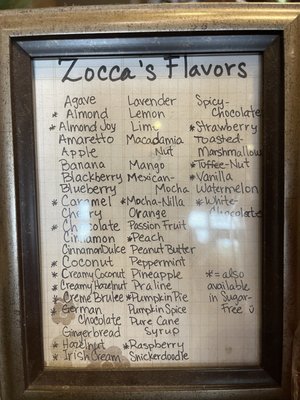 Zocca's Flavors
Agave
* Almond
* Almond Joy
Amaretto
Apple
Banana
Blackberry
Blueberry
* Caramel
Cherry
* Chocolate
Cinnamon
Cinnamon Dulce
* Coconut
* Creamy Coconut
* Creamy Hazelnut
* Creme Brulee
* German
Chocolate
Gingerbread
* Hazelnut
* Irish Cream
Lavender
Lemon
Lime
Macadamia
Nut
Mango
Mexican-
Mocha
* Mocha-Nilla
Orange
Passion Fruit
* Peach
Peanut Butter
Peppermint
Pineapple
Praline
* Pumpkin Pie
Pumpkin Spice
Pure Cane
Syrup
* Raspberry
Snickerdoodle
Spicy-
Chocolate
* Strawberry
Toasted
Marshmallow
* Toffee-Nut
* Vanilla
Watermelon
* White-
Chocolate
* = also
available
in Sugar-
Free